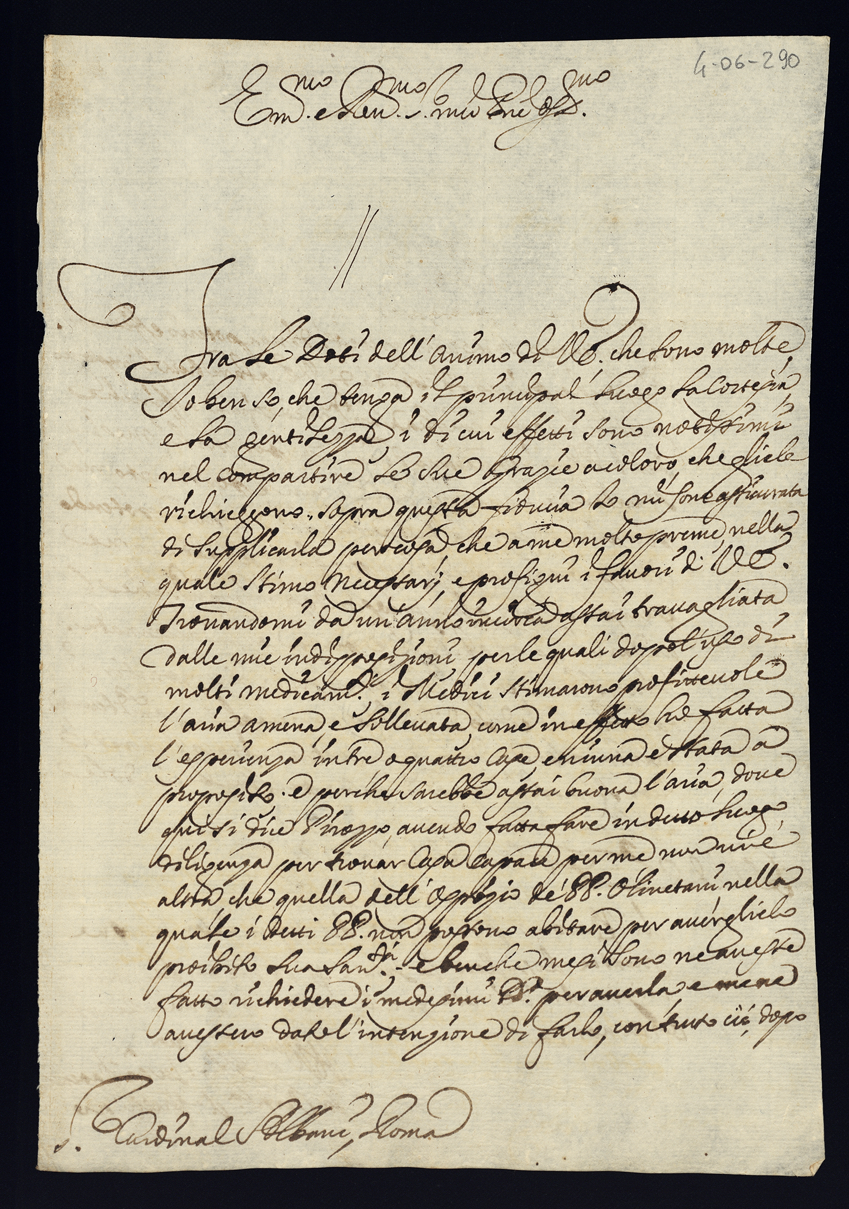 4-06-290
Em.mo e Reu.mo S. mio Pne Oss.mo
//
Fra le Doti dell'animo di V.E. che sono molte,
Io ben so, che tenga il principal luogo la Cortesia,
e la gentilezza, i di cui effetti sono notissimi
nel compartire le sue grazie a coloro, che gliele
richieggono. sopra questa fiducia Io mi sono assicurata
di supplicarla per cosa, che a me molto preme, nella
quale stimo necessarj, e profiqui i fauori di V.E.
Trouandomi da un'anno in circa assai trauagliata
dalle mie indisposizioni per le quali dopo l'uso di
molti medicam.ti i Medici stimarono profitteuole
l'aria amena, e solleuata, come in effetto ne ho fatta
l'esperienza in tre o quattro Case e niuna è stata a
proposito. e perche sarebbe assai buona l'aria, doue
qui si dice Pirozzo, auendo fatta fare in detto luogo,
diligenza per trouar Casa capace per me non ui è
altra che quella dell'Ospizio de' PP. Oliuetani nella
quale i detti PP. non possono abitare per auerglielo
proibito Sua San.tà. e benche mesi sono ne auesse
fatto richiedere i medesimi PP. per auerla, e me ne
auessero data l'intenzione di farlo, con tutto ciò, dopo
S. Cardinal Albani, Roma